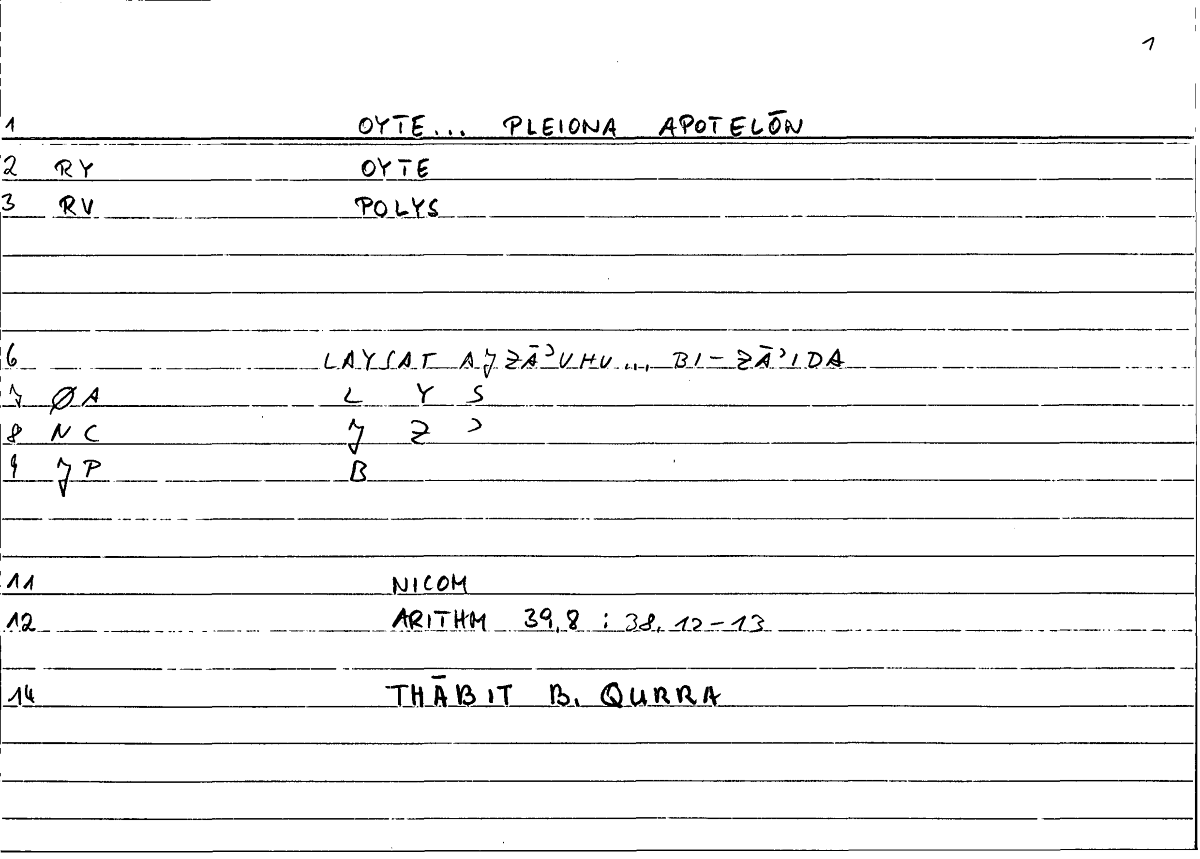 1
1 OYTE... PLEIONA APOTELŌN
2 RY OYTE
3 RV POLYS
6 LAYSAT AJZĀʾUHU... BI-ZĀʾIDA
7 ØA L Y S
8 NC J Z ʾ
9 JP B
11 NICOM
12 ARITHM 39,8 : 38,12-13
14 THĀBIT B. QURRA